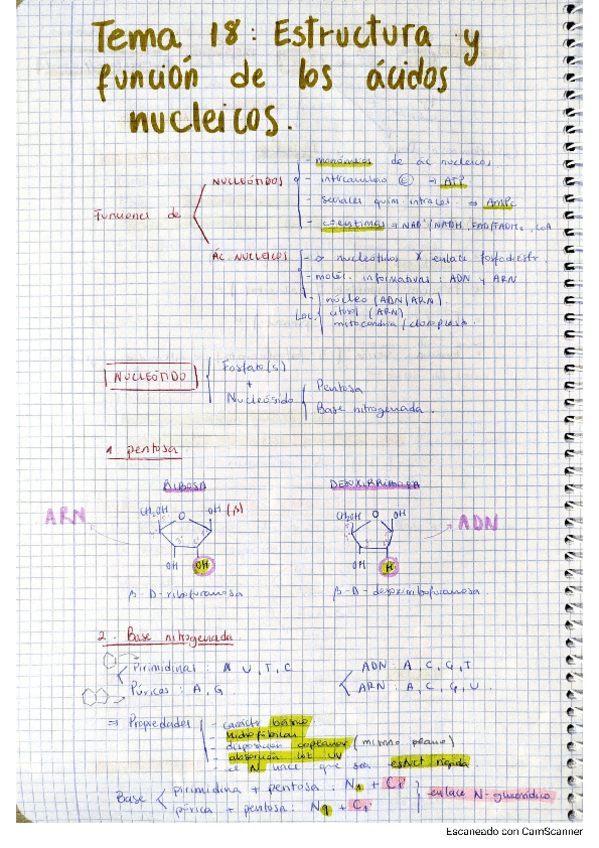 Tema 18: Estructura y
función de los ácidos
nucleicos.
Funciones de
NUCLEÓTIDOS
- monómeros de ác nucleicos
- intercambio E → ATP
- señales quím intracel. ⇒ AMPc
- coenzimas → NAD⁺/NADH, FAD/FADH₂, CoA
ÁC. NUCLEICOS
- nucleótidos x enlace fosfodiestr.
- moléc. informativas: ADN y ARN
Loc.
núcleo (ADN/ARN).
citosol (ARN)
mitocondria / cloroplasto.
NUCLEÓTIDO
Fosfato(s)
+
Nucleósido
Pentosa
Base nitrogenada.
1 pentosa
RIBOSA
DESOXIRRIBOSA
ARN
CH₂OH O OH (β)
OH OH
β-D-ribofuranosa
CH₂OH O OH
ADN
OH H
β-D-desoxiribofuranosa
2. Base nitrogenada
Pirimidinas: U, T, C
Púricas: A, G
ADN: A, C, G, T
ARN: A, C, G, U.
⇒ Propiedades
- carácter básico
- hidrofóbicas
- disposición coplanar (mismo plano)
- absorción luz UV
- el N hace que sea estruct rígida.
Base
pirimidina + pentosa: N₁ + C₁'
púrica + pentosa: N + C₁'
enlace N-glucosídico
Escaneado con CamScanner